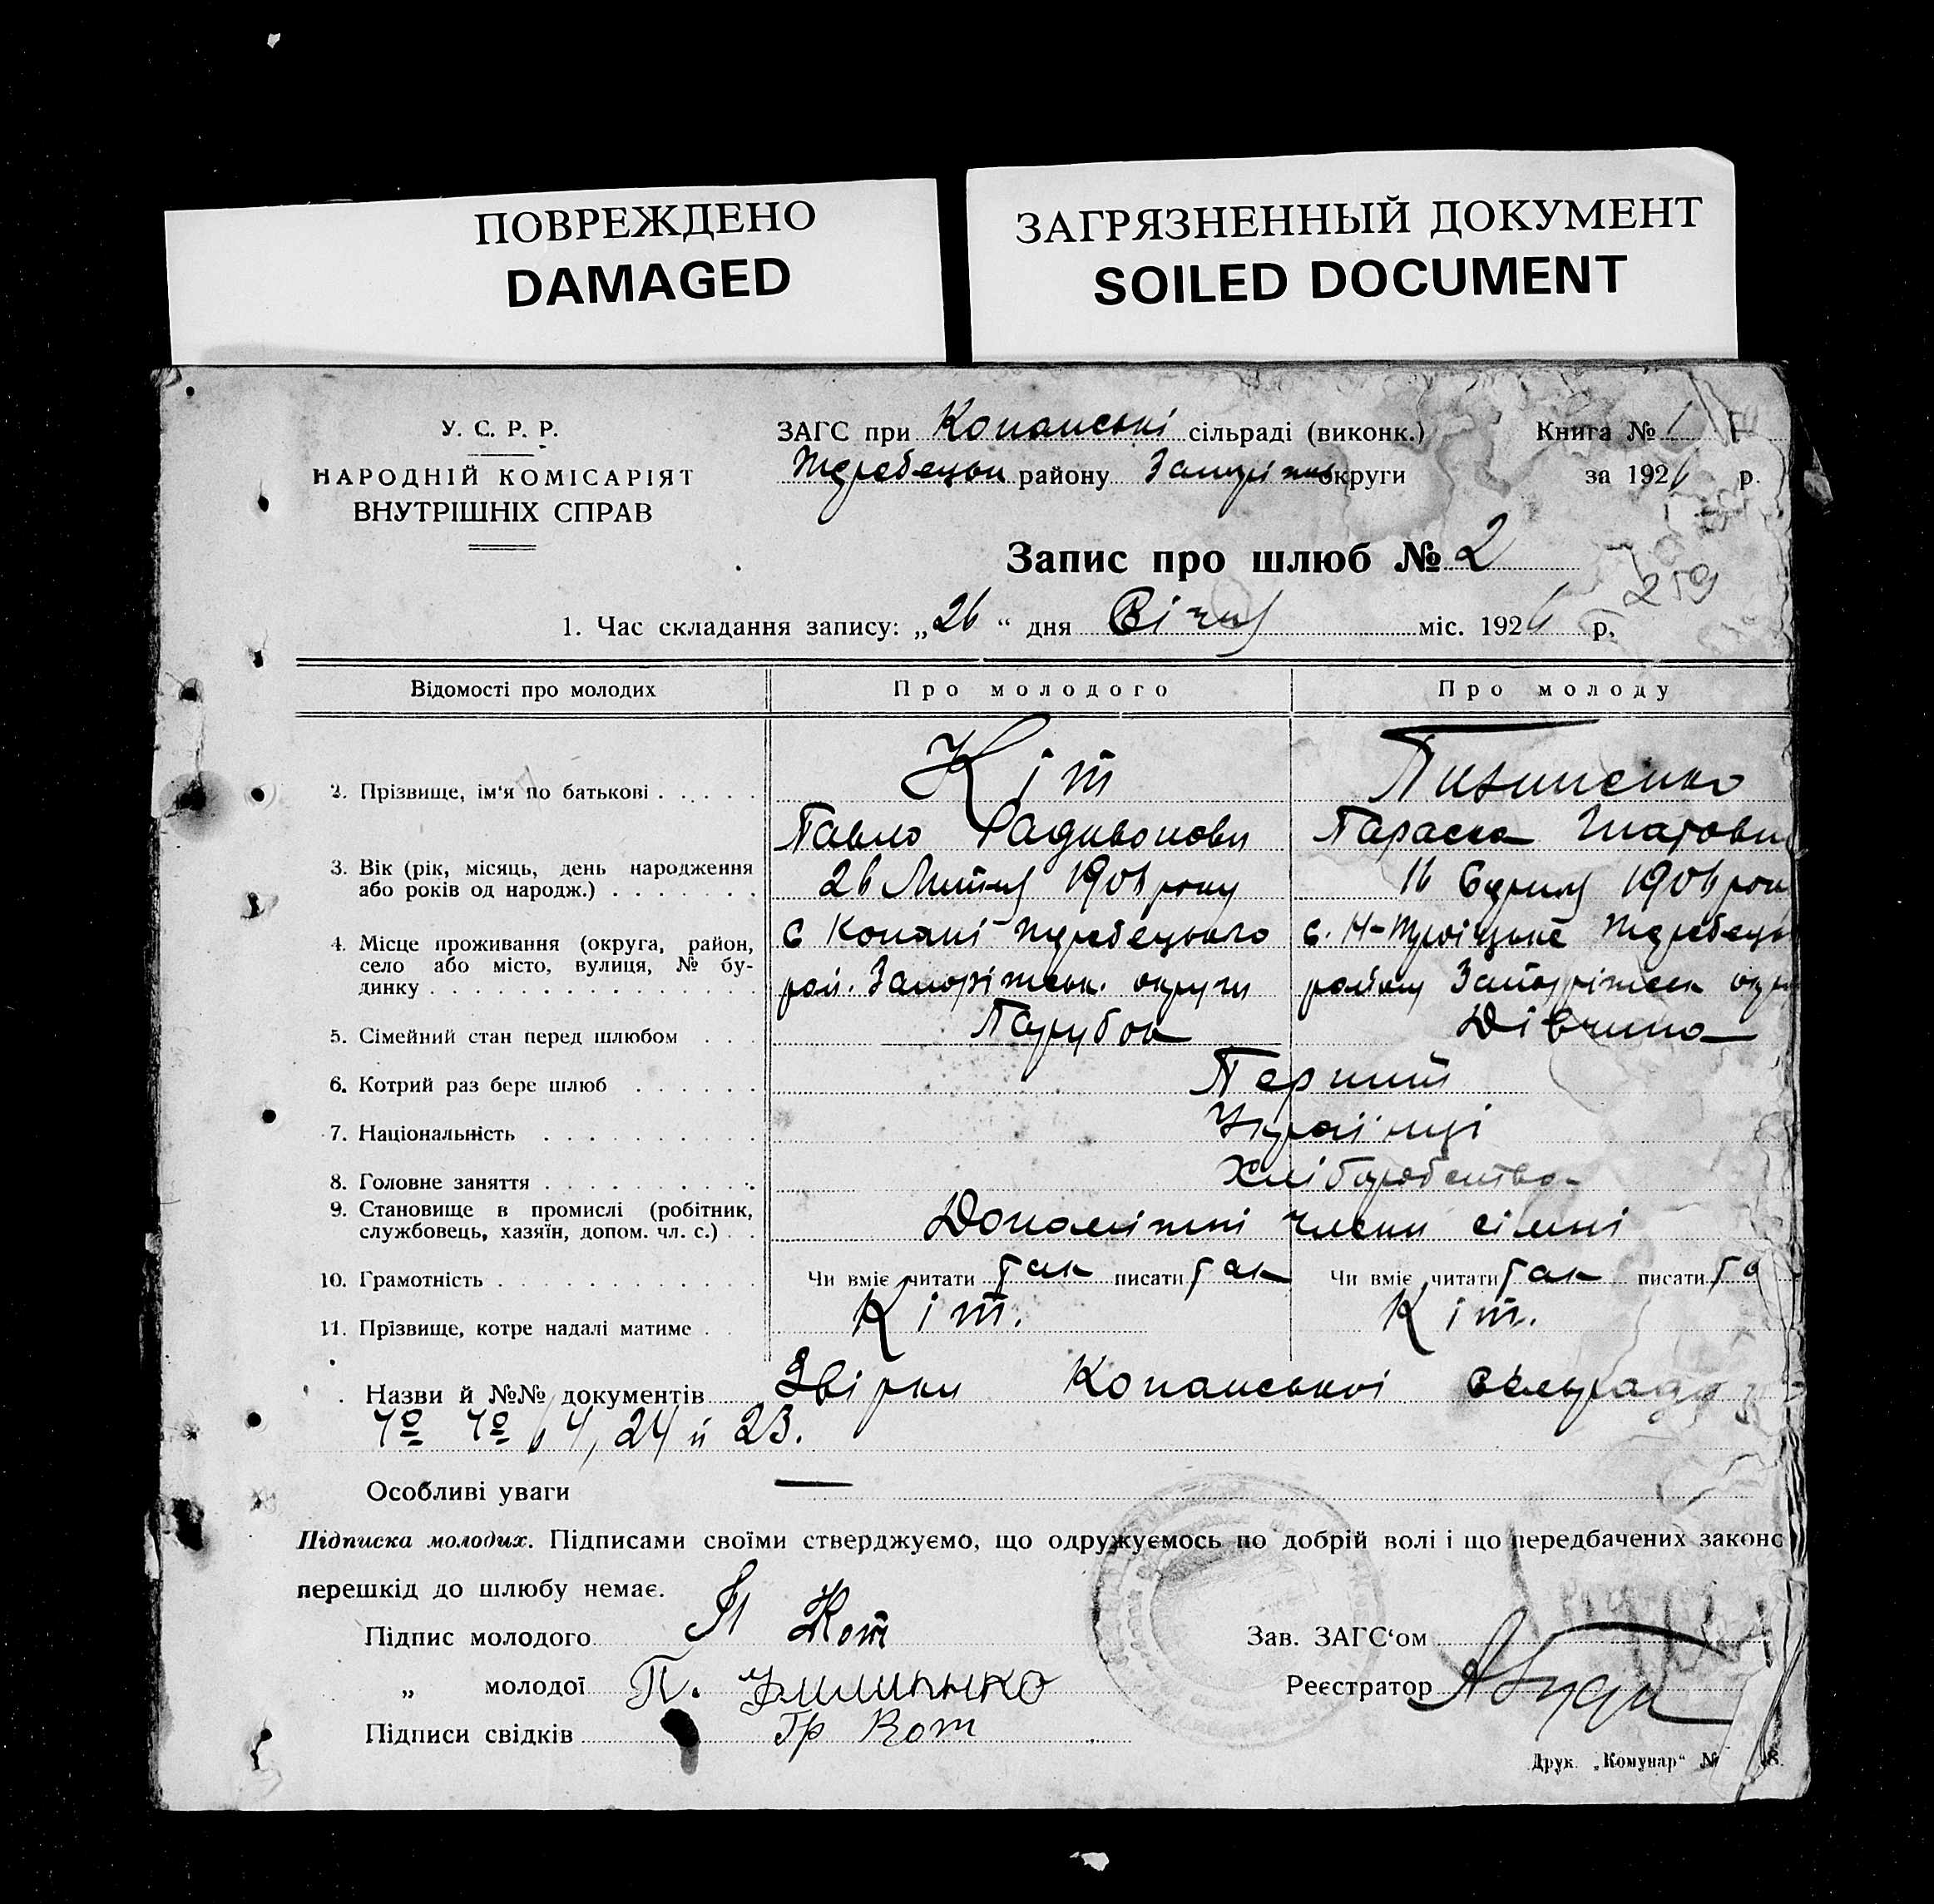 ПОВРЕЖДЕНО
DAMAGED
ЗАГРЯЗНЕННЫЙ ДОКУМЕНТ
SOILED DOCUMENT
У. С. Р. Р.
НАРОДНІЙ КОМІСАРІЯТ
ВНУТРІШНІХ СПРАВ
ЗАГС при Копанські сільраді (виконк.) Книга № 1
району округи за 1926 р.
Запис про шлюб № 2
259
1. Час складання запису: „26“ дня Січня міс. 1926 р.
Відомості про молодих Про молодого Про молоду
2. Прізвище, ім'я по батькові Кіт
Павло Радивонови Параска
3. Вік (рік, місяць, день народження або років од народж.) 26 року
4. Місце проживання (округа, район, село або місто, вулиця, № будинку с Копані Жеребецького с. Н-Троїцьке Жеребецьк
рай. Запоріжськ. округи району Запоріжськ окр
5. Сімейний стан перед шлюбом Парубок Дівчина
6. Котрий раз бере шлюб Перший
7. Національність Українці
8. Головне заняття Хліборобство
9. Становище в промислі (робітник, службовець, хазяїн, допом. чл. с.) Допоміжні члени сімні
10. Грамотність Чи вміє читати так писати так Чи вміє читати так писати та
11. Прізвище, котре надалі матиме Кіт. Кіт.
Назви й №№ документів Звірки Копанської сільради
24 й 23.
Особливі уваги —
Підписка молодих. Підписами своїми стверджуємо, що одружуємось по добрій волі і що передбачених законо
перешкід до шлюбу немає.
Підпис молодого П Кот Зав. ЗАГС‘ом
„ молодої П. Реєстратор
Підписи свідків Гр Кот
Друк. „Комунар“ №